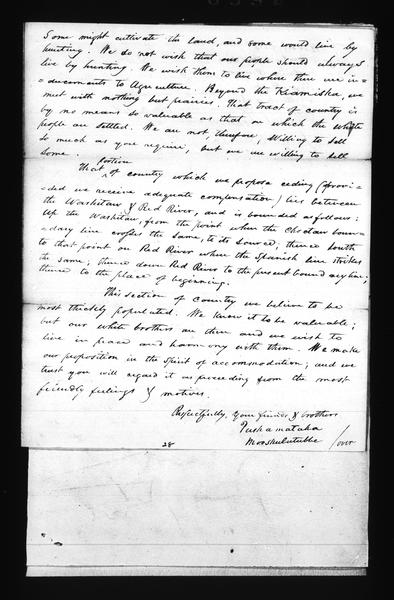 Some might cultivate the land, and some would live by
hunting. We do not wish that our people should always
live by hunting. We wish them to live where there are in=
=ducements to Agriculture. Beyond the Kiamiska, we
met with nothing but prairies. That tract of country is
by no means so valuable as that on which the white
people are settled. We are not, therefore, willing to sell
so much as you require, but we are willing to sell
some.
portion
That ^ of country which we propose ceding (provi=
=ded we receive adequate compensation) lies between
the Washitaw & Red River, and is bounded as follows:
Up the Washitaw, from the point where the Choctaw boun=
=dary line crosses the same, to its source; thence South
to that point on Red River where the Spanish line strikes
the same; thence down Red River to the present boundary line;
thence to the place of beginning.
This section of country we believe to be
most thickly populated. We know it to be valuable;
but our white brothers are there and we wish to
live in peace and harmony with them. We make
our proposition in the spirit of accommodation; and we
trust you will regard it as proceeding from the most
friendly feelings & motives.
Respectfully, your friends & brothers
Pushamataha
Mooshulatubbe
/over
28